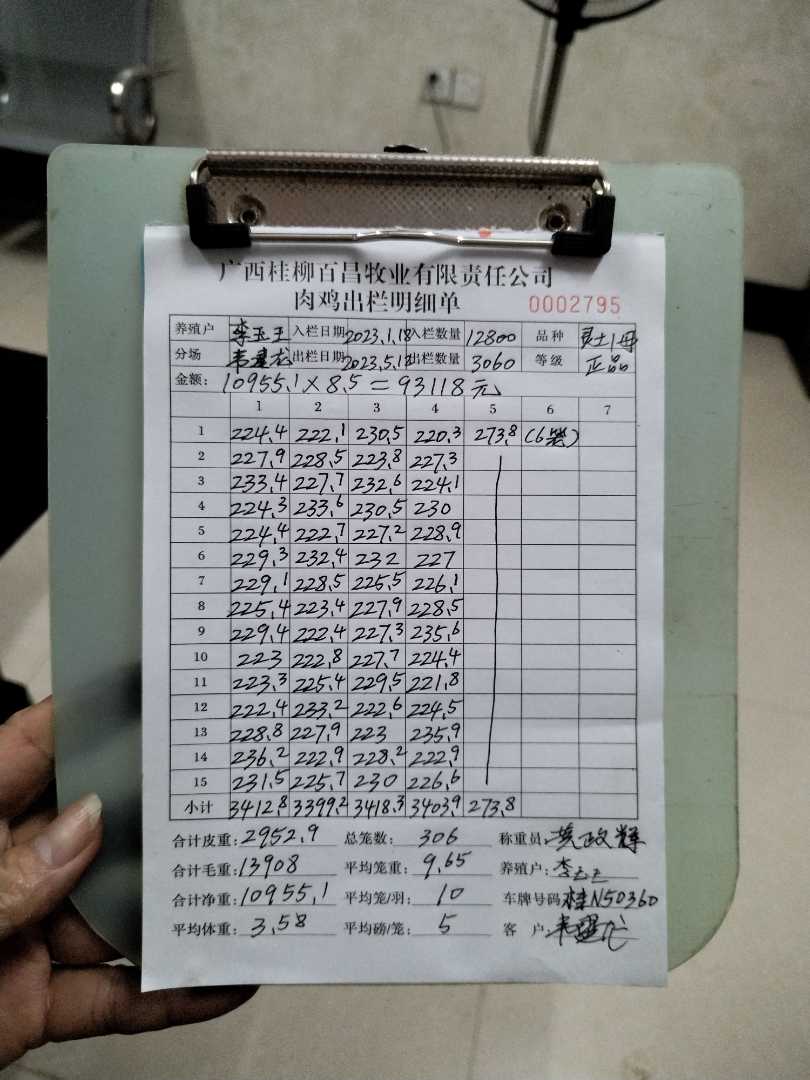 广西桂柳百昌牧业有限责任公司
肉鸡出栏明细单 0002795
养殖户 李玉王 入栏日期 2023.1.18 入栏数量 12800 品种
分场 出栏日期 2023.5.12 出栏数量 3060 等级 正品
金额: 10955.1×8.5=93118元
1 2 3 4 5 6 7
1 224.4 222.1 230.5 220.3 273.8 (6笼)
2 227.9 228.5 223.8 227.3
3 233.4 227.7 232.6 224.1
4 224.3 233.6 230.5 230
5 224.4 222.7 227.2 228.9
6 229.3 232.4 232 227
7 229.1 228.5 225.5 226.1
8 225.4 223.4 227.9 228.5
9 229.4 222.4 227.3 235.6
10 223 222.8 227.7 224.4
11 223.3 225.4 229.5 221.8
12 222.4 233.2 222.6 224.5
13 228.8 227.9 223 235.9
14 236.2 222.9 228.2 222.9
15 231.5 225.7 230 226.6
小计 3412.8 3399.2 3418.3 3403.9 273.8
合计皮重: 2952.9 总笼数: 306 称重员: 黄政辉
合计毛重: 13908 平均笼重: 9.65 养殖户:
合计净重: 10955.1 平均笼/羽: 10 车牌号码 桂N50360
平均体重: 3.58 平均磅/笼: 5 客 户: